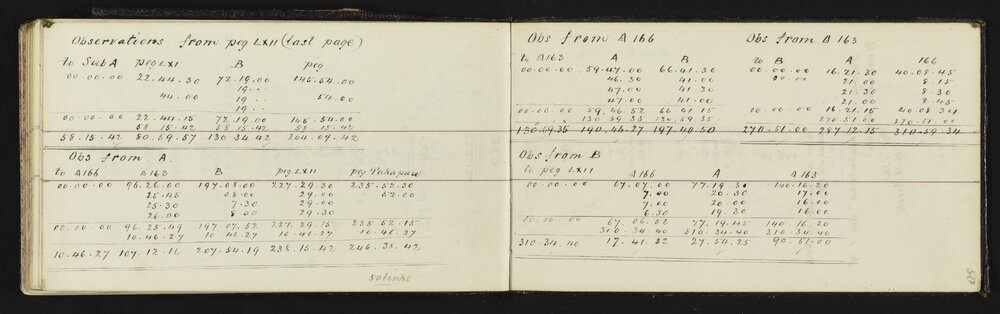 Observations from peg LXII (last page)
to SubA peg LXI B peg
00.00.00 22.44.30 72.19.00 145.54.00
44.00 19 .. 54.00
19 ..
19 ..
00.00.00 22.44.15 72.19.00 145.54.00
58.15.42 58.15.42 58.15.42
58.15.42 80.59.57 130.34.42 204.09.42
Obs from A.
to A166 A163 B peg LXII peg Takapau
00.00.00 96.26.00 197.08.00 227.29.30 235.52.30
25.45 08.00 29.00 52.00
25.30 7.30 29.00
26.00 8.00 29.30
00.00.00 96.25.49 197.07.52 227.29.15 235.52.15
10.46.27 10.46.27 10.46.27 10.46.27
10.46.27 107.12.16 207.54.19 238.15.42 246.38.42
50 links
Obs from A 166
to A163 A B
00.00.00 59.47.00 66.41.30
46.30 41.00
47.00 41.30
47.00 41.00
00.00.00 59.46.52 66.41.15
130.59.35 130.59.35
130.59.35 190.46.27 197.40.50
Obs from A 163
to B A 166
00.00.00 16.21.30 40.08.45
00.00 21.00 8.15
21.30 8.30
21.00 8.45
00.00.00 16.21.15 40.08.34
270.51.00 270.51.00
270.51.00 287.12.15 310.59.34
Obs from B
to peg LXII A166 A A163
00.00.00 67.07.00 77.19.30 140.16.20
7.00 20.30 17.00
7.00 20.00 16.00
6.30 19.30 16.00
00.00.00 67.06.52 77.19.45 140.16.20
310.34.40 310.34.40 310.34.40
310.34.40 17.41.32 27.54.25 90.51.00
50